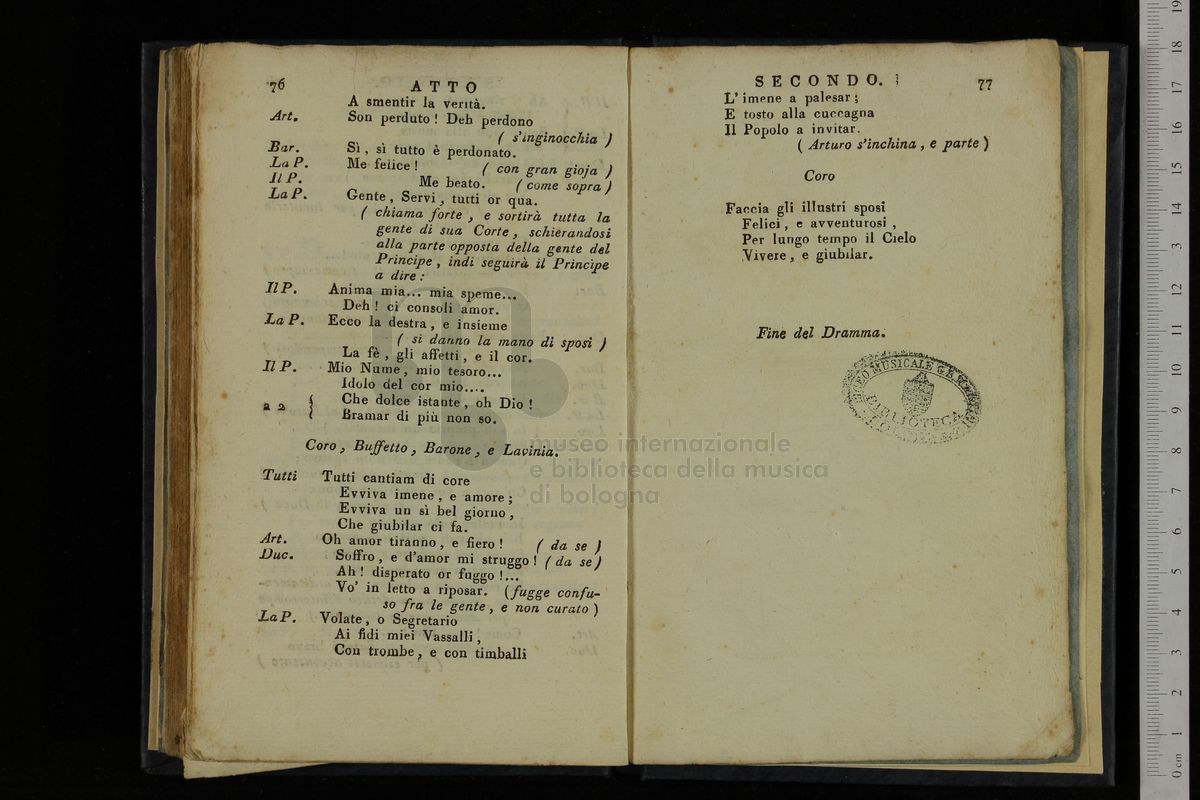 76 ATTO
A smentir la verità.
Art. Son perduto! Deh perdono
( s'inginocchia )
Bar. Sì, sì tutto è perdonato.
La P. Me felice! ( con gran gioja )
Il P. Me beato. ( come sopra )
La P. Gente, Servi, tutti or qua.
( chiama forte, e sortirà tutta la
gente di sua Corte, schierandosi
alla parte opposta della gente del
Principe, indi seguirà il Principe
a dire:
Il P. Anima mia... mia speme...
Deh! ci consoli amor.
La P. Ecco la destra, e insieme
( si danno la mano di sposi )
La fè, gli affetti, e il cor.
Il P. Mio Nume, mio tesoro...
Idolo del cor mio....
a 2 { Che dolce istante, oh Dio!
Bramar di più non so.
Coro, Buffetto, Barone, e Lavinia.
Tutti Tutti cantiam di core
Evviva imene, e amore;
Evviva un sì bel giorno,
Che giubilar ci fa.
Art. Oh amor tiranno, e fiero! ( da se )
Duc. Soffro, e d'amor mi struggo! ( da se )
Ah! disperato or fuggo!...
Vo' in letto a riposar. (fugge confu-
so fra le gente, e non curato )
La P. Volate, o Segretario
Ai fidi miei Vassalli,
Con trombe, e con timballi
SECONDO. 77
L'imene a palesar;
E tosto alla cuccagna
Il Popolo a invitar.
( Arturo s'inchina, e parte )
Coro
Faccia gli illustri sposi
Felici, e avventurosi,
Per lungo tempo il Cielo
Vivere, e giubilar.
Fine del Dramma.
MUSICALE G.B.
BIBLIOTECA
museo internazionale
e biblioteca della musica
di bologna
0 cm 1 2 3 4 5 6 7 8 9 10 11 12 13 14 15 16 17 18 19